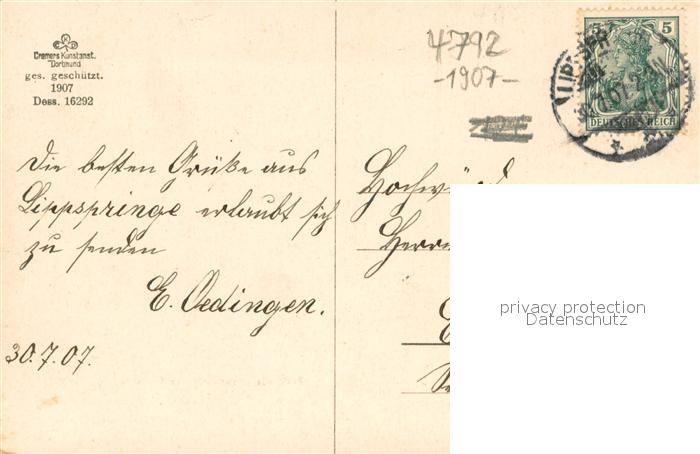 Cramers Kunstanst.
Dortmund
ges. geschützt.
1907
Dess. 16292
4792
-1907-
5
DEUTSCHES REICH
Die besten Grüße aus
Lippspringe erlaubt sich
zu senden
E. Oedingen.
30.7.07.
Herrn
privacy protection
Datenschutz